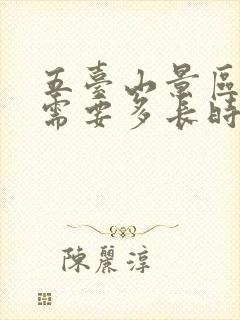 五臺山景區
需要多長時
陳麗淳